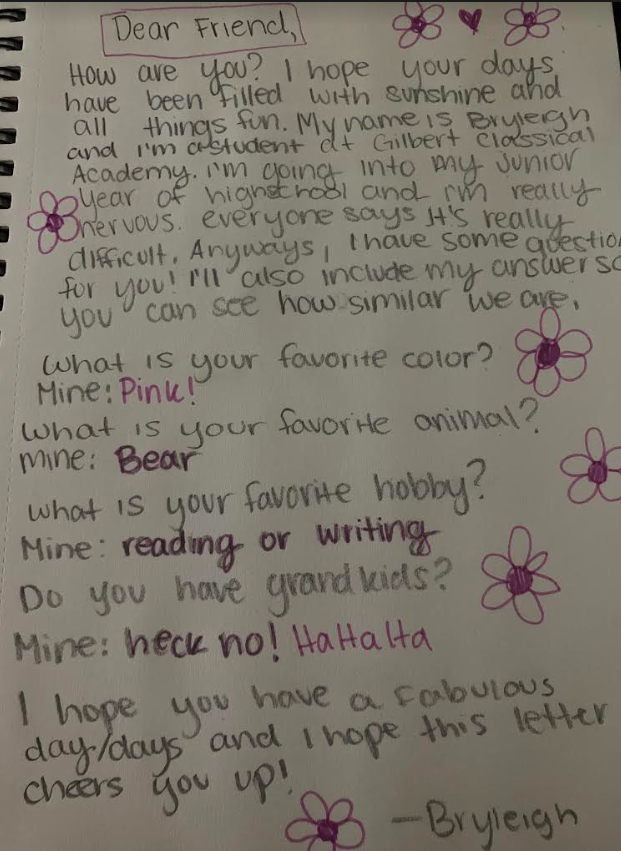 Dear Friend,
How are you? I hope your days
have been filled with sunshine and
all things fun. My name is Bryleigh
and I'm a student at Gilbert Classical
Academy. I'm going into my Junior
year of highschool and I'm really
nervous. everyone says it's really
difficult. Anyways, I have some questio
for you! I'll also include my answer so
you can see how similar we are.
What is your favorite color?
Mine: Pink!
What is your favorite animal?
Mine: Bear
What is your favorite hobby?
Mine: reading or writing
Do you have grandkids?
Mine: heck no! HaHaHa
I hope you have a fabulous
day/days and I hope this letter
cheers you up!
—Bryleigh